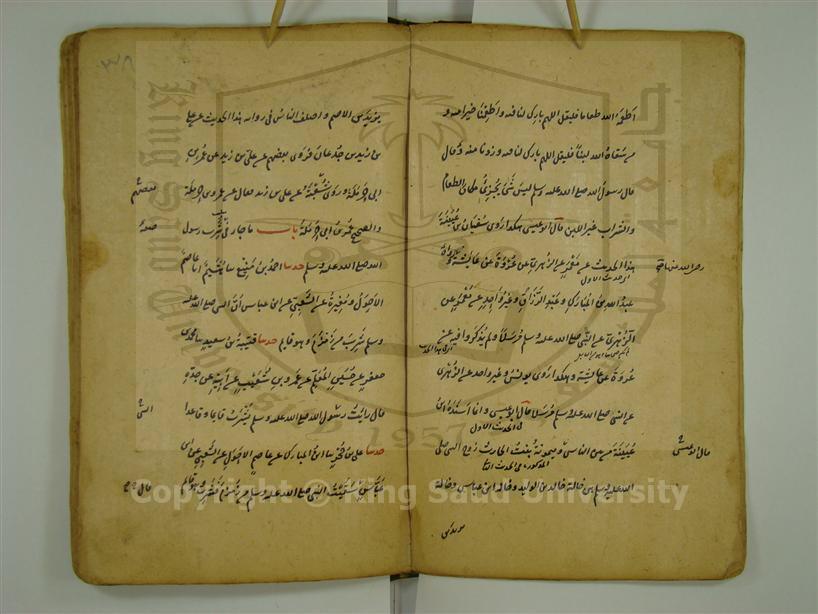 اطعمه الله طعاما فليقل اللهم بارك لنا فيه واطعمنا خيرا منه و
من سقاه الله لبنا فليقل اللهم بارك لنا فيه وزدنا منه وقال
قال رسول الله صلى الله عليه وسلم ليس شئ يجزئ مكان الطعام
والشراب غير اللبن قال ابو عيسى هكذا روى سفيان بن عيينة
هذا الحديث عن معمر عن الزهرى عن عروة عن عائشة ورواه
رضى الله عنها
عبد الله بن المبارك وعبد الرزاق وغير واحد عن معمر عن
الزهرى عن النبى صلى الله عليه وسلم مرسلا ولم يذكروا فيه عن
عروة عن عائشة وهكذا روى يونس وغير واحد عن الزهرى
عن النبى صلى الله عليه وسلم مرسلا قال ابو عيسى وانما اسنده ابن
فى الحديث الاول
عيينة من بين الناس وميمونة بنت الحارث زوج النبى صلى
قال ابو عيسى
المذكورة فى الحديث
الله عليه وسلم هى خالة خالد بن الوليد وخالة ابن عباس وخالة
يزيد بن الاصم واختلف الناس فى رواية هذا الحديث عن على
بن زيد بن جدعان فروى بعضهم عن على بن زيد عن عمر بن
ابى حرملة وروى شعبة عن على بن زيد فقال عن عمرو بن حرملة
بعضهم
والصحيح عمر بن ابى حرملة باب ما جاء فى شرب رسول
صفة
الله صلى الله عليه وسلم حدثنا احمد بن منيع ثنا هشيم انا عاصم
الاحول ومغيرة عن الشعبى عن ابن عباس ان النبى صلى الله عليه
وسلم شرب من زمزم وهو قائم حدثنا قتيبة بن سعيد ثنا محمد بن
جعفر عن حسين المعلم عن عمرو بن شعيب عن ابيه عن جده
قال رايت رسول الله صلى الله عليه وسلم يشرب قائما وقاعدا
النبى
حدثنا على بن حجر ثنا ابن المبارك عن عاصم الاحول عن الشعبى عن ابن
عباس قال سقيت النبى صلى الله عليه وسلم من زمزم فشرب وهو قائم
قال
King Saud University
1957
Copyright © King Saud University